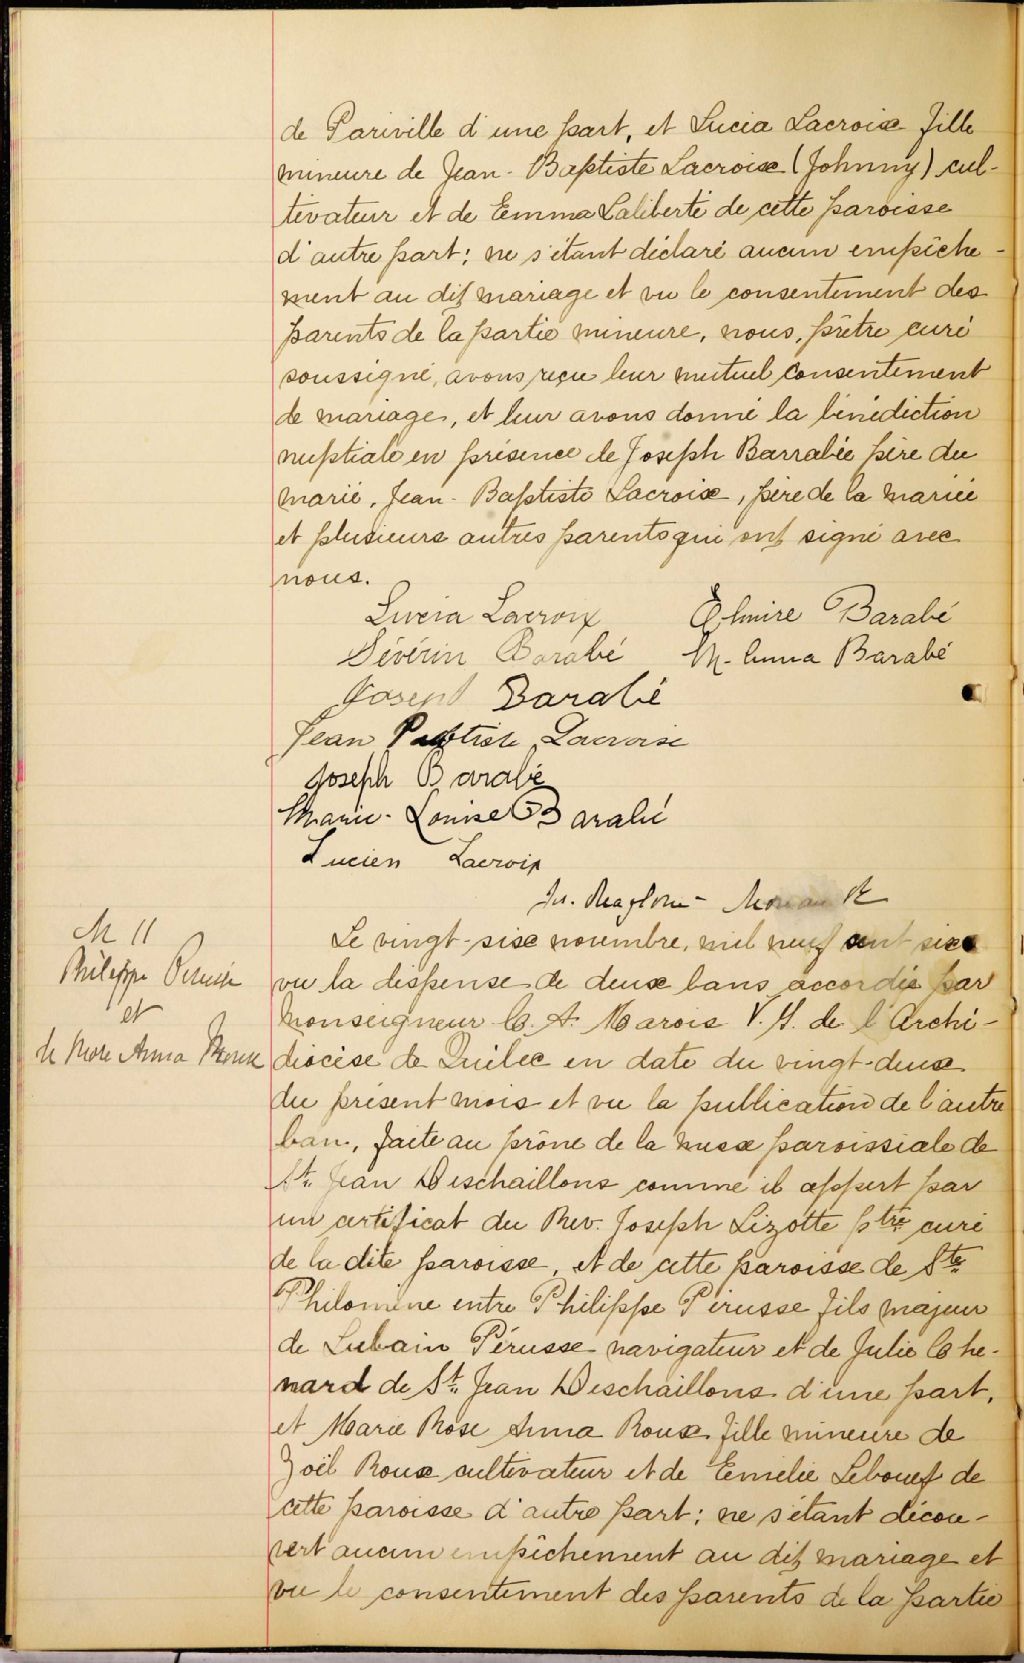 de Pariville d'une part, et Lucia Lacroix fille
mineure de Jean-Baptiste Lacroix (Johnny) cul-
tivateur et de Emma Laliberté de cette paroisse
d'autre part; ne s'étant déclaré aucun empêche-
ment au dit mariage et vu le consentement des
parents de la partie mineure, nous, prêtre curé
soussigné, avons reçu leur mutuel consentement
de mariage, et leur avons donné la bénédiction
nuptiale en présence de Joseph Barrabée père du
marié, Jean-Baptiste Lacroix, père de la mariée
et plusieurs autres parents qui ont signé avec
nous.
Lucia Lacroix Elmire Barabé
Sévérin Barabé M-Anna Barabé
Joseph Barabé
Jean Baptiste Lacroix
Joseph Barabé
Marie-Louise Barabé
Lucien Lacroix
M 11
Philippe Perusse
et
Rose Anna
Le vingt-six novembre, mil neuf cent six
vu la dispense de deux bans accordée par
Monseigneur C. A. Marois V. G. de l'Archi-
diocèse de Québec en date du vingt-deux
du présent mois et vu la publication de l'autre
ban, faite au prône de la messe paroissiale de
St. Jean Deschaillons comme il appert par
un certificat du Rev. Joseph Lizotte ptre curé
de la dite paroisse, et de cette paroisse de Ste
Philomène entre Philippe Pérusse fils majeur
de Lubain Pérusse navigateur et de Julie Che-
nard de St. Jean Deschaillons d'une part,
et Marie Rose Anna Roux fille mineure de
Zoël Roux cultivateur et de Emélie Lebouef de
cette paroisse d'autre part; ne s'étant décou-
vert aucun empêchement au dit mariage et
vu le consentement des parents de la partie